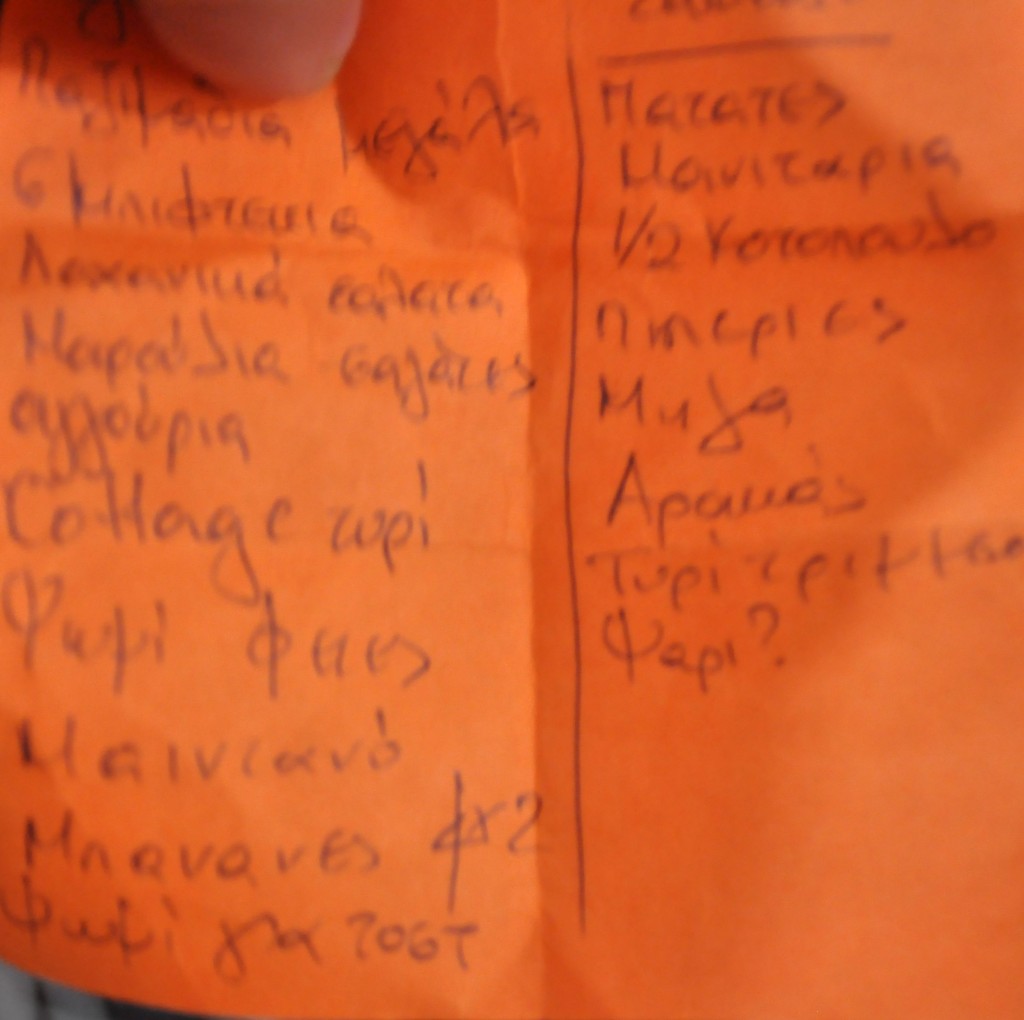 Παξιμάδια μεγάλα
6 Μπιφτεκια
Λαχανικά σαλατα
Μαρούλια σαλάτες
αγγούρια
Cottage τυρί
Ψωμί φετες
Μαιντανό
Μπανανες φχ2
Ψωμί για τοστ
Πατατες
Μανιταρια
1/2 Κοτοπουλο
Πιπεριες
Μηλα
Αρακάς
Τυρί τριμμενο
Ψαρι?